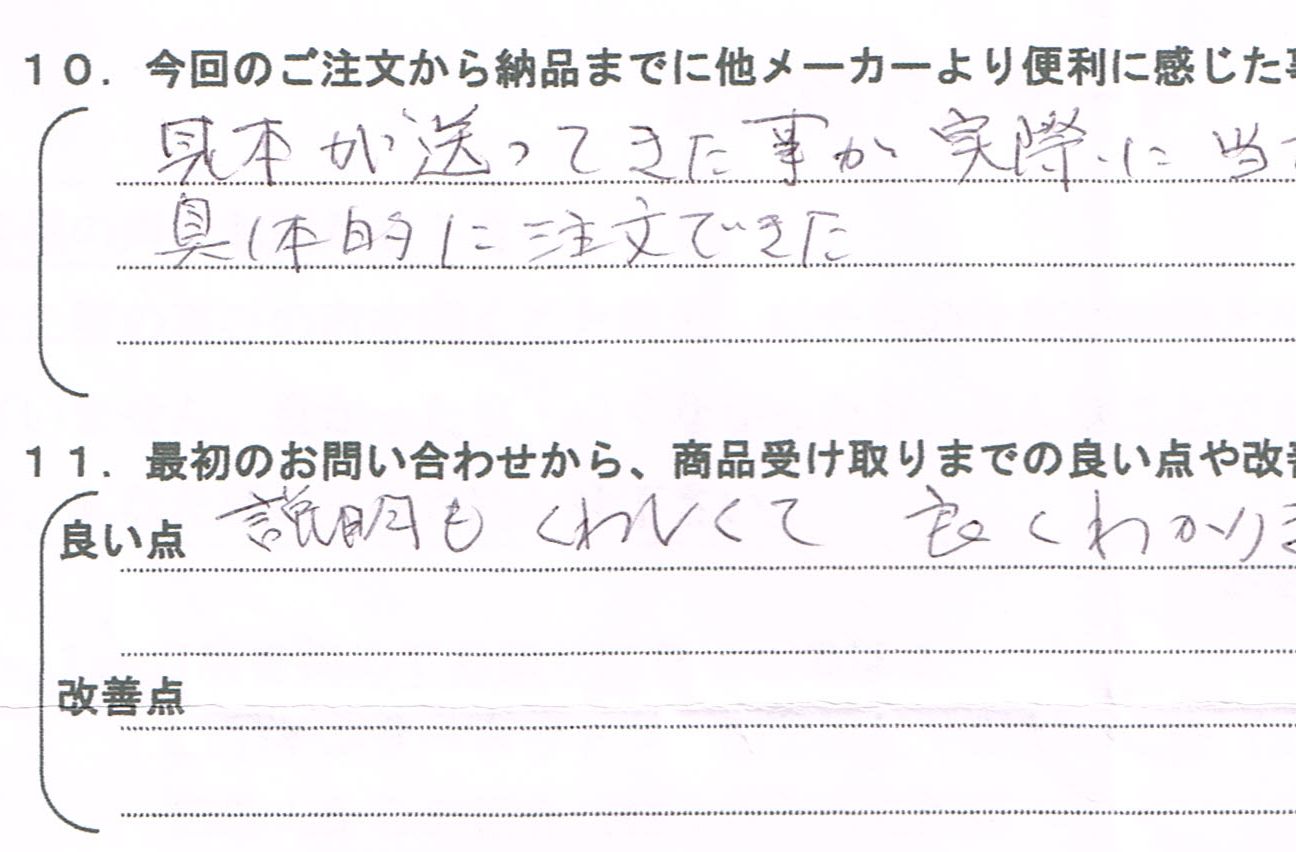 10．今回のご注文から納品までに他メーカーより便利に感じた事
見本が送ってきた事が 実際に 当
具体的に注文できた
11．最初のお問い合わせから、商品受け取りまでの良い点や改善
良い点 説明もくわしくて 良くわかりま
改善点